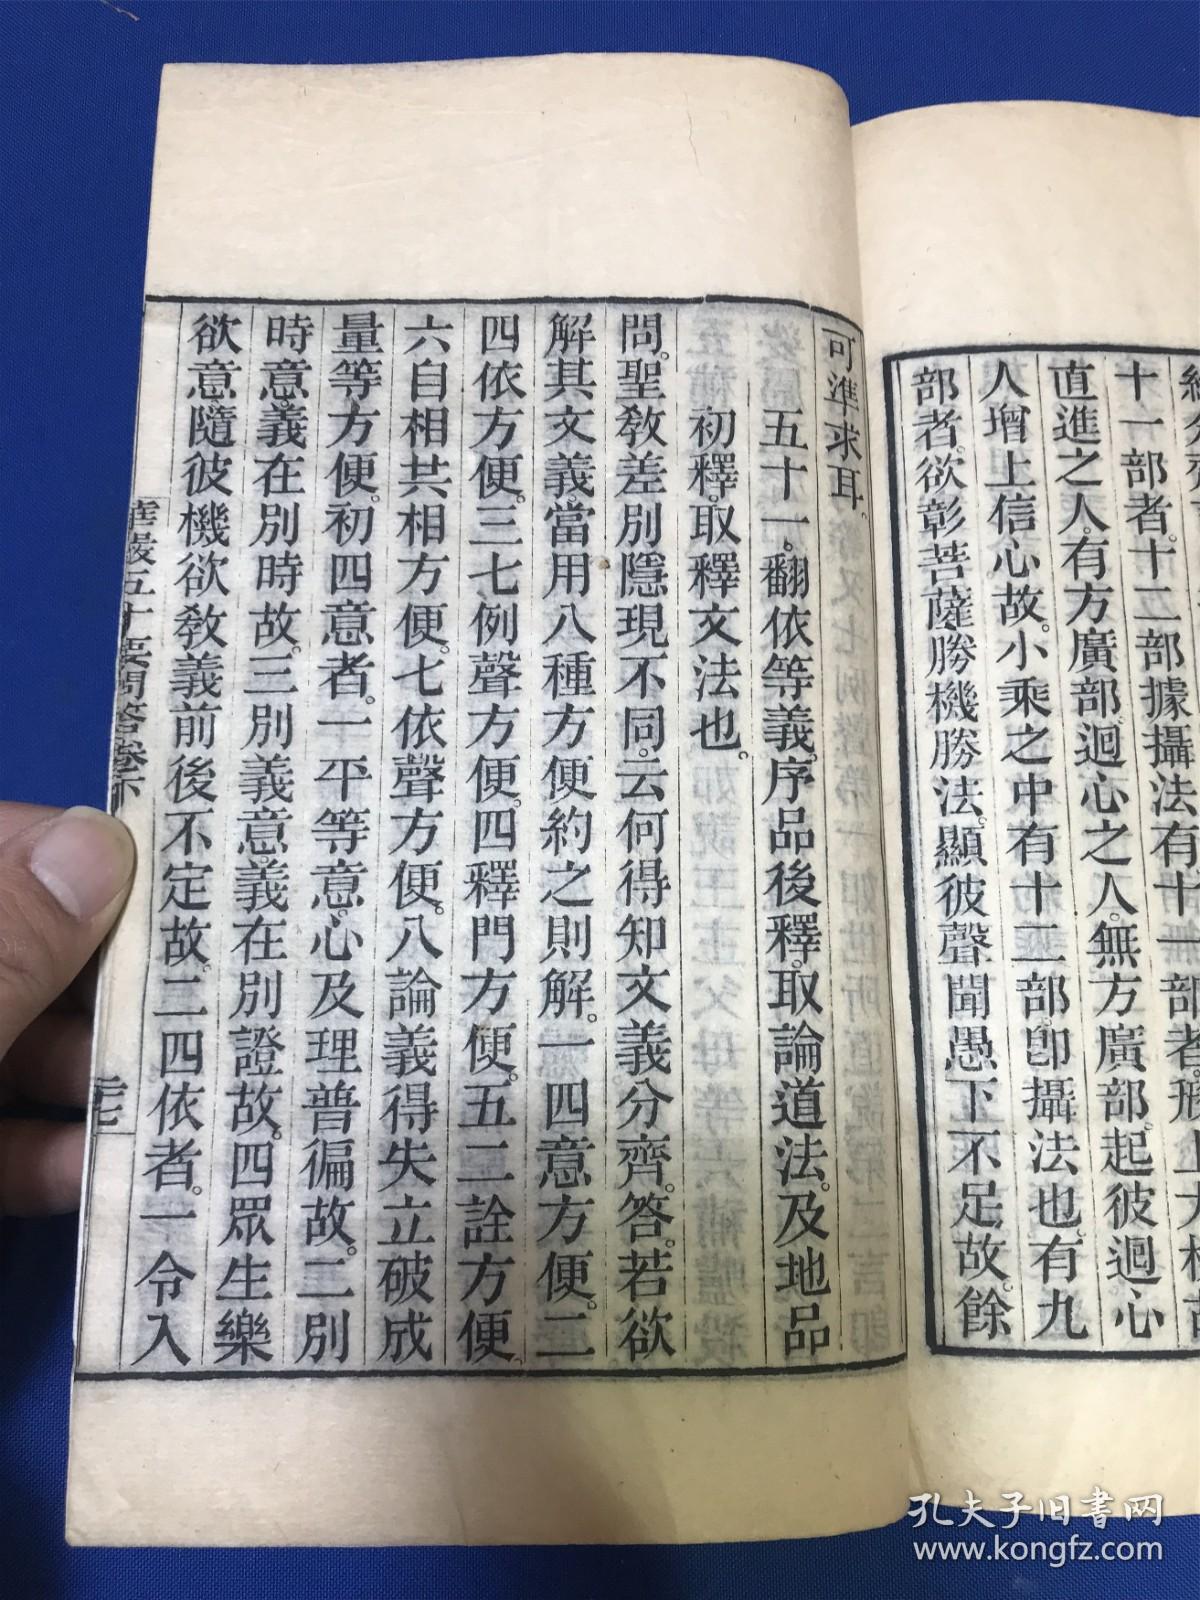 十一部者。十二部據攝法有十一部者。
直進之人。有方廣部。迴心之人。無方廣部。起彼迴心
人增上信心故。小乘之中有十二部。卽攝法也。有九
部者。欲彰菩薩勝機勝法。顯彼聲聞愚下不足故。餘
可準求耳。
五十一。翻依等義。序品後釋。取論道法。及地品
初釋。取釋文法也。
問。聖教差別隱現不同。云何得知文義分齊。答。若欲
解其文義。當用八種方便約之則解。一四意方便。二
四依方便。三七例聲方便。四釋門方便。五二詮方便。
六自相共相方便。七依聲方便。八論義得失立破成
量等方便。初四意者。一平等意。心及理普徧故。二別
時意。義在別時故。三別義意。義在別證故。四眾生樂
欲意。隨彼機欲教義前後不定故。二四依者。一令入
華嚴五十要問答卷下
二七
孔夫子旧書网
www.kongfz.com